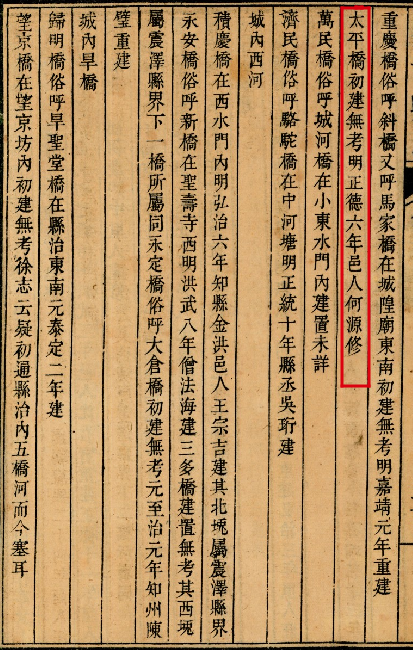 重慶橋俗呼斜橋又呼馬家橋在城隍廟東南初建無考明嘉靖元年重建
太平橋初建無考明正德六年邑人何源修
萬民橋俗呼城河橋在小東水門內建置未詳
濟民橋俗呼駱駝橋在中河塘明正統十年縣丞吳珩建
城內西河
積慶橋在西水門內明弘治六年知縣金洪邑人王宗吉建其北堍屬震澤縣界
永安橋俗呼新橋在聖壽寺西明洪武八年僧法海建三多橋建置無考其西堍
屬震澤縣界下一橋所屬同永定橋俗呼大倉橋初建無考元至治元年知州陳
璧重建
城內旱橋
歸明橋俗呼早聖堂橋在縣治東南元泰定二年建
望京橋在望京坊內初建無考徐志云疑初通縣治內五橋河而今塞耳